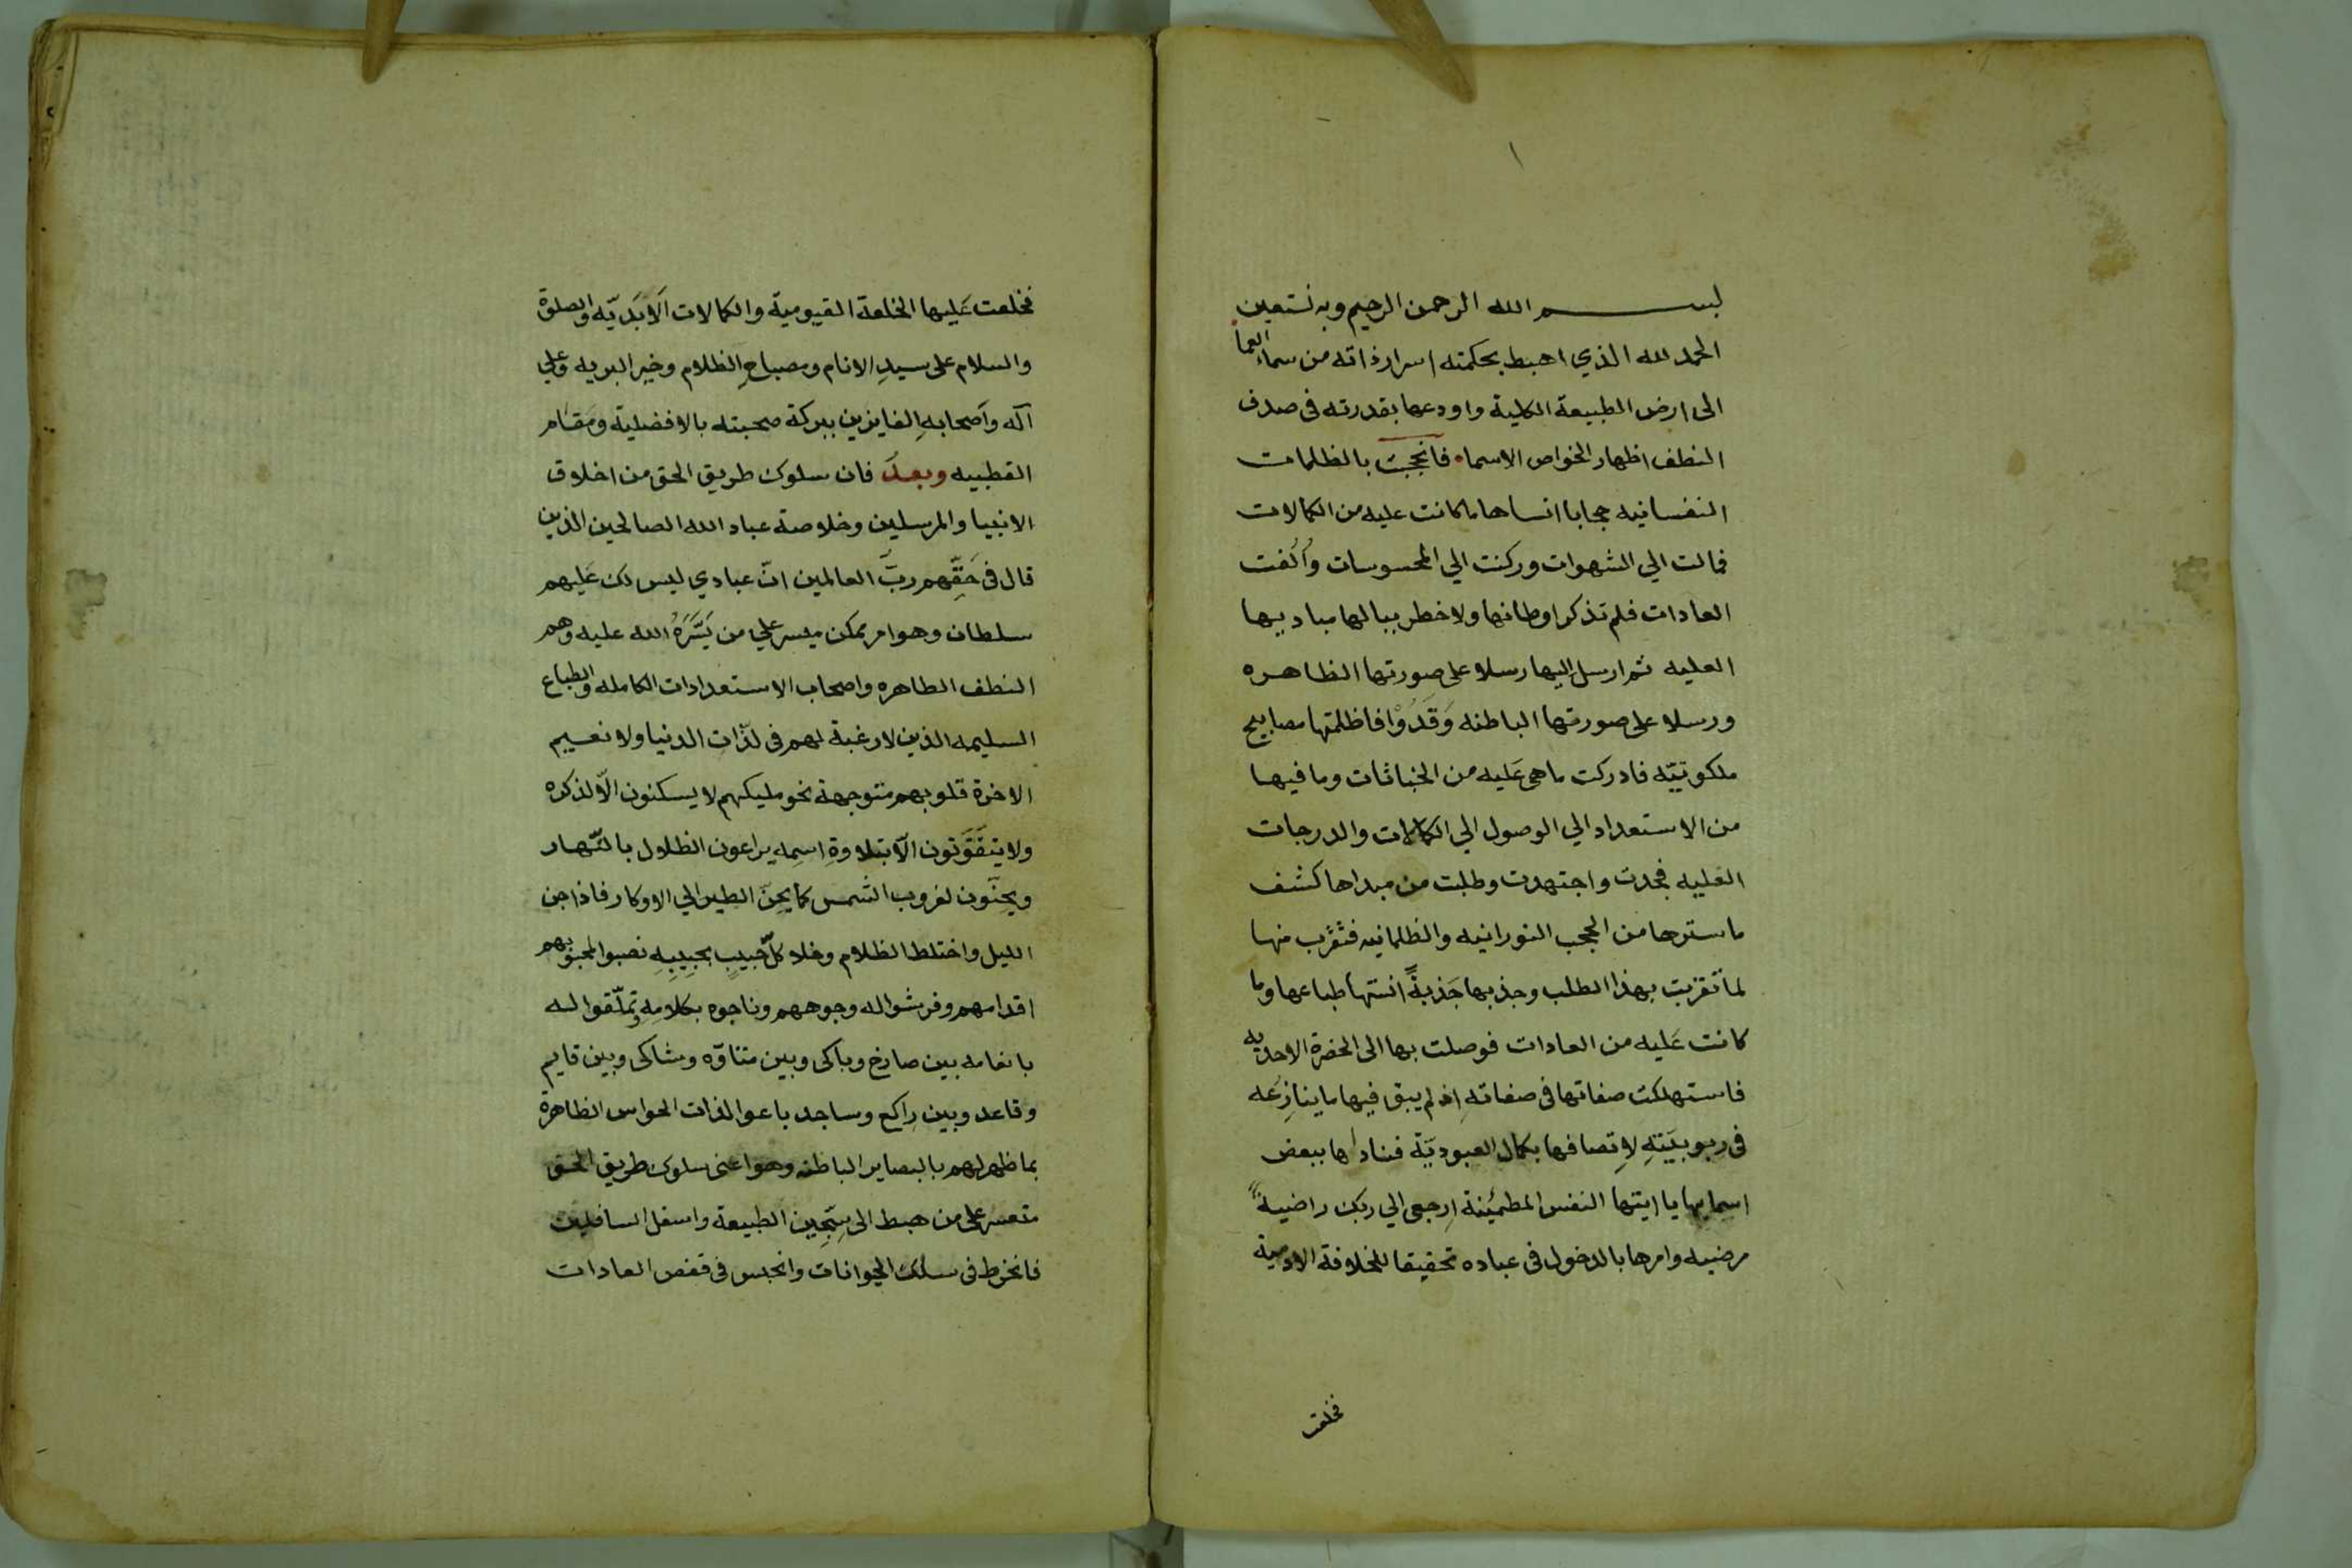 ١
بسم الله الرحمن الرحيم وبه نستعين
الحمد لله الذي اهبط بحكمته اسرار ذاته من سماء العما
الى ارض الطبيعة الكلية واودعها بقدرته فى صدف
النطف اظهار الخواص الاسما فانحجبت بالظلمات
النفسانيه حجابا انساها ما كانت عليه من الكمالات
فمالت الي الشهوات وركنت الي المحسوسات وألفت
العادات فلم تذكر اوطانها ولا خطر ببالها مباديها
العليه ثم ارسل اليها رسلا على صورتها الظاهره
ورسلا على صورتها الباطنه وقدوا فاظلمتها مصابيح
ملكوتيّه فادركت ما هى عَليه من الخباثات وما فيها
من الاستعداد الي الوصول الي الكمالات والدرجات
العليه فجدت واجتهدت وطلبت من مبداها كشف
ما سترها من الحجب النورانيه والظلمانيه فتقرب منها
لما تقربت بهذا الطلب وجذبها جَذبةً انستها طباعها وما
كانت عَليه من العادات فوصلت بها الى الحضرة الاحديه
فاستهلكت صفاتها فى صفاته اذ لم يبق فيها ما ينازعه
فى ربوبيّته لاتصافها بكمال العبوديّة فناداها ببعض
اسمايها يا ايتها النفس المطمئنة ارجعى الي ربك راضيةً
مرضيه وامرها بالدخول فى عباده تحقيقا للخلافة الادمية
فخلعت
فخلعت عَليها الخلعة القيومية والكمالات الاَبَديّه والصلوة
والسلام على سيدِ الانام ومصباحِ الظلام وخير البريه وعلي
آله وأصحابهِ الفايزين ببركة صحبته بالافضلية ومَقام
القطبيه وبعد فان سلوك طريق الحق من اخلاق
الانبيا والمرسلين وخلاصة عباد الله الصالحين الذين
قال فى حَقّهم ربّ العالمين انّ عبادي ليس لك عَليهم
سلطان وهو امر ممكن ميسر علي من يَسَّرَهُ الله عليه وهم
النطف الطاهره واصحاب الاستعدادات الكامله والطباع
السليمه الذين لا رغبة لهم فى لذّات الدنيا ولا نعيم
الاخرة قلوبهم متوجهة نحو مليكهم لا يسكنون الّا لذكره
ولا يتقَوَّتون الّا بتلاوةِ اسمِه يراعون الظلال بالنّهار
ويحنّون لغروب الشّمس كما يحنّ الطير الي الاوكار فاذا جن
الليل واختلط الظلام وخلا كلّ حبيبٍ بحبيبِهِ نصبوا لمحبوبهم
اقدامهم وفرشوا له وجوههم وناجوه بكلامه وتملّقوا له
بانعامه بين صارخ وباكى وبين متاوّه وشاكى وبين قايم
وقاعد وبين راكع وساجد باعوا لذات الحواس الظاهرة
بما ظهر لهم بالبصاير الباطنه وهو اعنى سلوك طريق الحق
متعسر على من هبط الى سِجّين الطبيعة واسفل السافلين
فانخرط فى سلك الحيوانات وانحبس فى قفص العادات